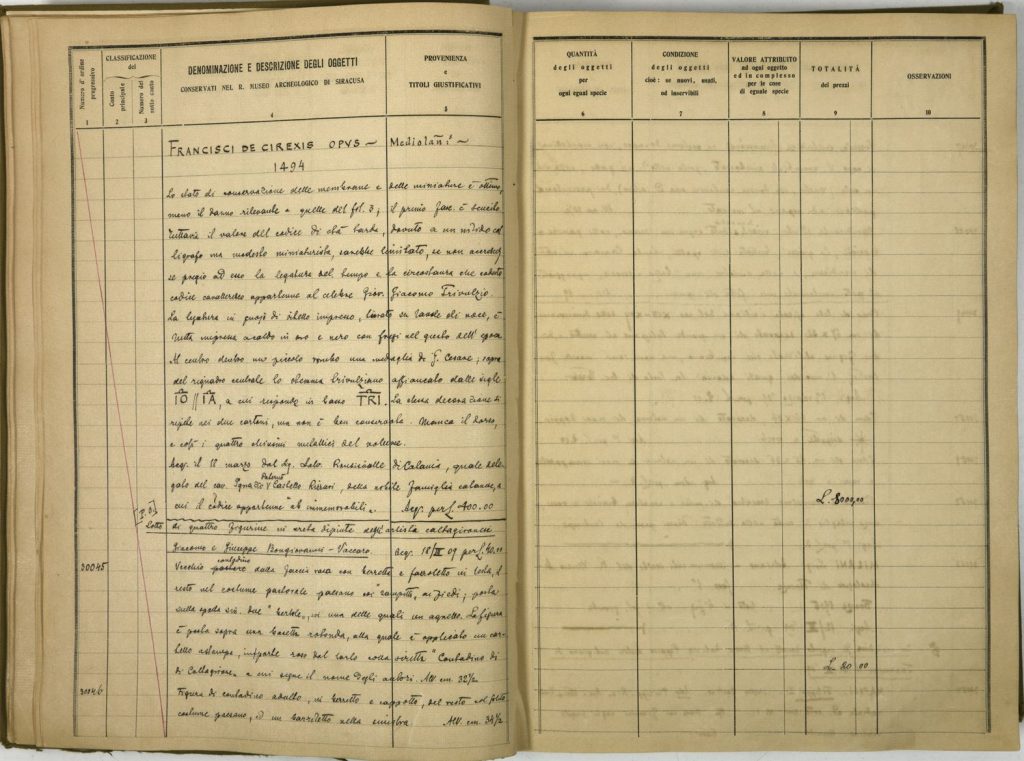 Numero d'ordine progressivo
CLASSIFICAZIONE
dei
Conto principale
Numero del sotto conto
DENOMINAZIONE E DESCRIZIONE DEGLI OGGETTI
CONSERVATI NEL R. MUSEO ARCHEOLOGICO DI SIRACUSA
PROVENIENZA
e
TITOLI GIUSTIFICATIVI
1 2 3 4 5
FRANCISCI DE CIREXIS OPVS ~ Mediolani ~
1494
Lo stato di conservazione delle membrane e delle miniature è ottimo,
meno il danno rilevante a quelle del fol. 3; il primo fasc. è scucito.
Tuttavia il valore del codice di età tarda, dovuto a un nitido cal
ligrafo ma modesto miniaturista, sarebbe limitato, se non accrescesse
se pregio ad esso la legatura del tempo e la circostanza che codesto
codice appartenne al celebre Giov. Giacomo Trivulzio.
La legatura in impresso, su tavole di noce, è
tutta impressa a caldo in oro e nero con fregi nel gusto dell'epoca.
Al centro dentro un piccolo rombo una medaglia di G. Cesare; sopra
del riquadro centrale lo stemma trivulziano affiancato dalle sigle
IO // IA, a cui risponde in basso TRI. La stessa decorazione si
ripete nei due cartoni, ma non è ben conservata. Manca il dorso,
e così i quattro metallici del volume.
Acq. il 18 marzo dal Sg. Salv. di Catania, quale dele-
gato del cav. Ignazio Paternò Castello Rizzari, della nobile famiglia catanese, a
cui il codice appartenne "ab immemorabili". Acq. per L. 400.00
Lotto di quattro figurine in creta dipinte degli artista caltagironesi
Giacomo e Giuseppe Bongiovanni-Vaccaro. Acq. 18/III 09 per L. 40.00
30045
Vecchio contadino pastore dalla faccia rasa con berretto e fazzoletto in testa, il
resto nel costume pastorale paesano coi "zampitti" ai piedi; porta
sulla spalla due "bertole", in una delle quali un agnello. La figura
è posta sopra una basetta rotonda, alla quale è applicato un car-
tello a stampa, in parte roso dal tarlo colla scritta "Contadino di
di Caltagirone" a cui segue il nome degli autori. Alt. cm. 32½
30046
Figura di contadino adulto, in berretto e cappotto, del resto nel solito
costume paesano, ed un barriletto nella sinistra. Alt. cm. 34½
QUANTITÀ
degli oggetti
per
ogni egual specie
CONDIZIONE
degli oggetti
cioè: se nuovi, usati,
od inservibili
VALORE ATTRIBUITO
ad ogni oggetto
ed in complesso
per le cose
di eguale specie
TOTALITÀ
dei prezzi
OSSERVAZIONI
6 7 8 9 10
L. 8000,00
L. 20 00